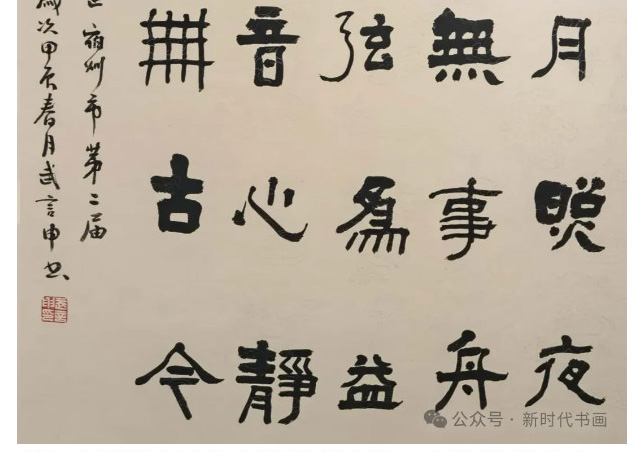 月照夜
無事舟
弦為益
音心靜
無古今
宿州市第二届
歲次甲辰春月武言申书
公众号·新时代书画